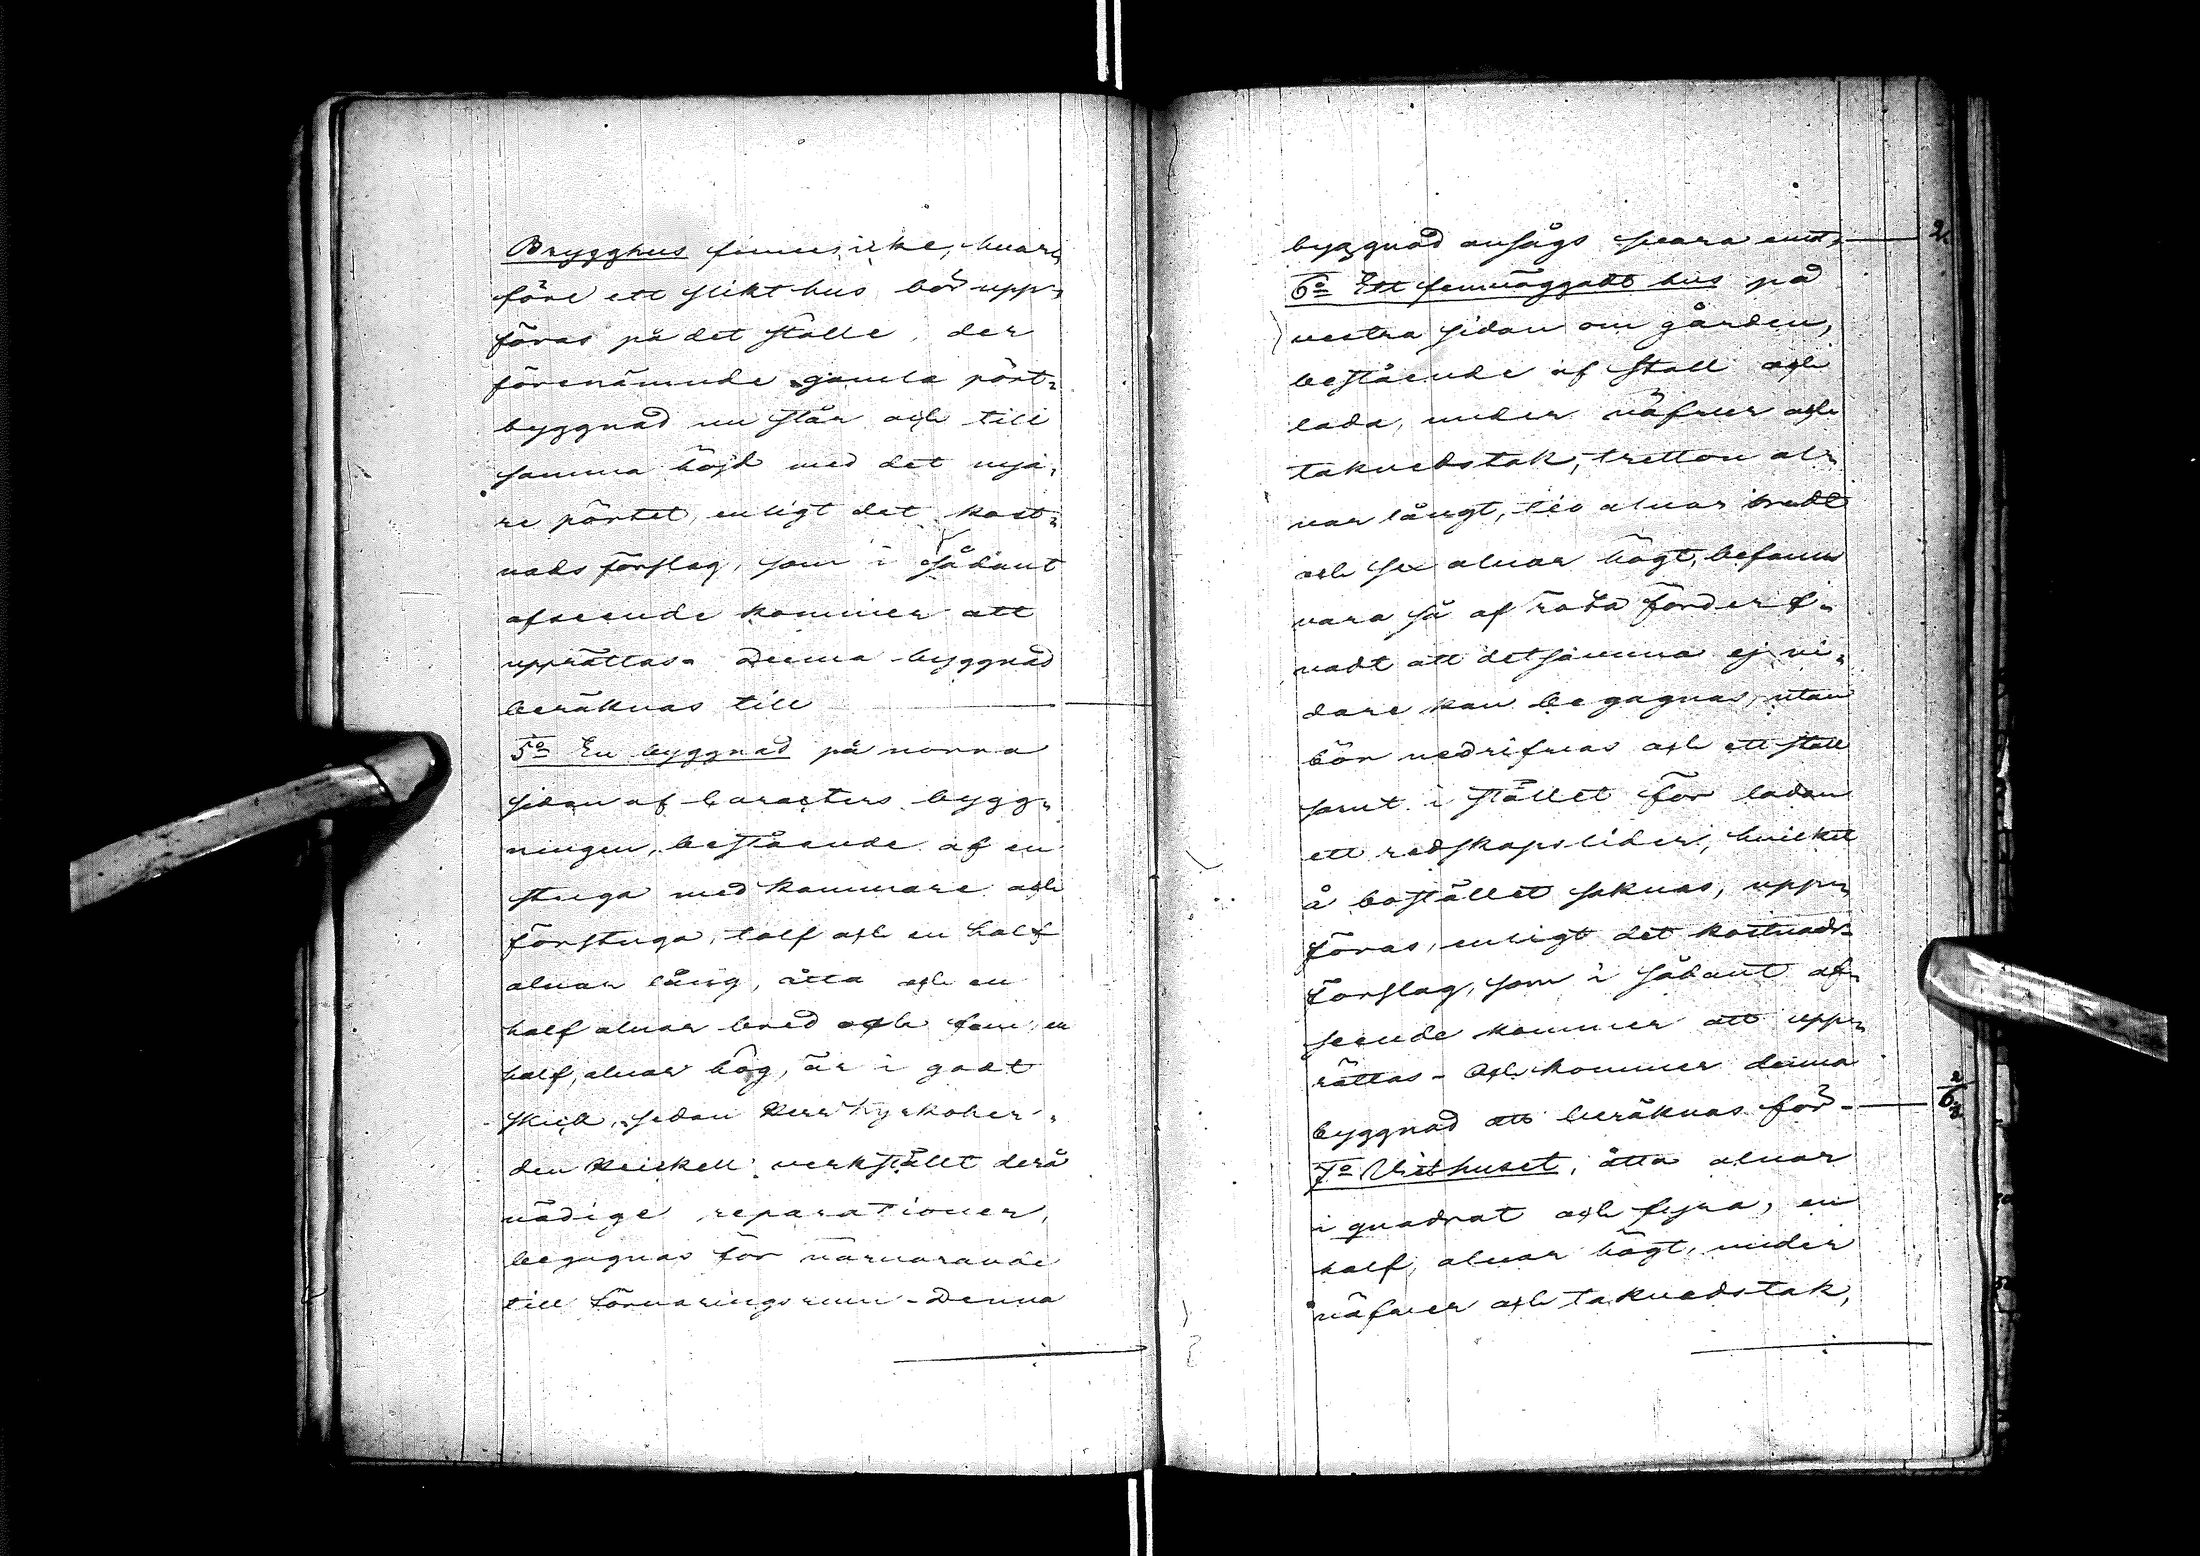 Brygghus finnes icke, hvar-
före ett slikt hus bör upp-
föras på det ställe, der
förenämnde gamla pört-
byggnad nu står och till
samma höjd med det nya-
re pörtet, enligt det kost-
nads förslag, som i sådant
afseende kommer att
upprättas. Denna byggnad
beräknas till
5o En byggnad på norra
sidan af karacters bygg-
ningen, bestående af en
stuga med kammare och
förstuga, tolf och en half
alnar lång, åtta och en
half alnar bred och fem, en
half, alnar hög, är i godt
skick, sedan Herr Kyrkoher-
den Heickell verkställt derå
nödige reparationer,
begagnas för närvarande
till förvaringsrum. Denna
byggnad ansågs svara emot 2
6o Ett femväggadt hus på
vestra sidan om gården,
bestående af stall och
lada, under näfver och
takvedstak, tretton al-
nar långt, tio alnar bredt
och sex alnar högt, befanns
vara så af röta förderf-
vadt att detsamma ej vi-
dare kan begagnas, utan
bör nedrifvas och ett stall
samt i stället för ladan
ett redskapslider, hvilket
å bostället saknas, upp-
föras, enligt det kostnads-
förslag, som i sådant af-
seende kommer att upp-
rättas. Och kommer denna
byggnad att beräknas för
7o Vedhuset, åtta alnar
i quadrat och fyra, en
half, alnar högt, under
näfver och takvedstak,